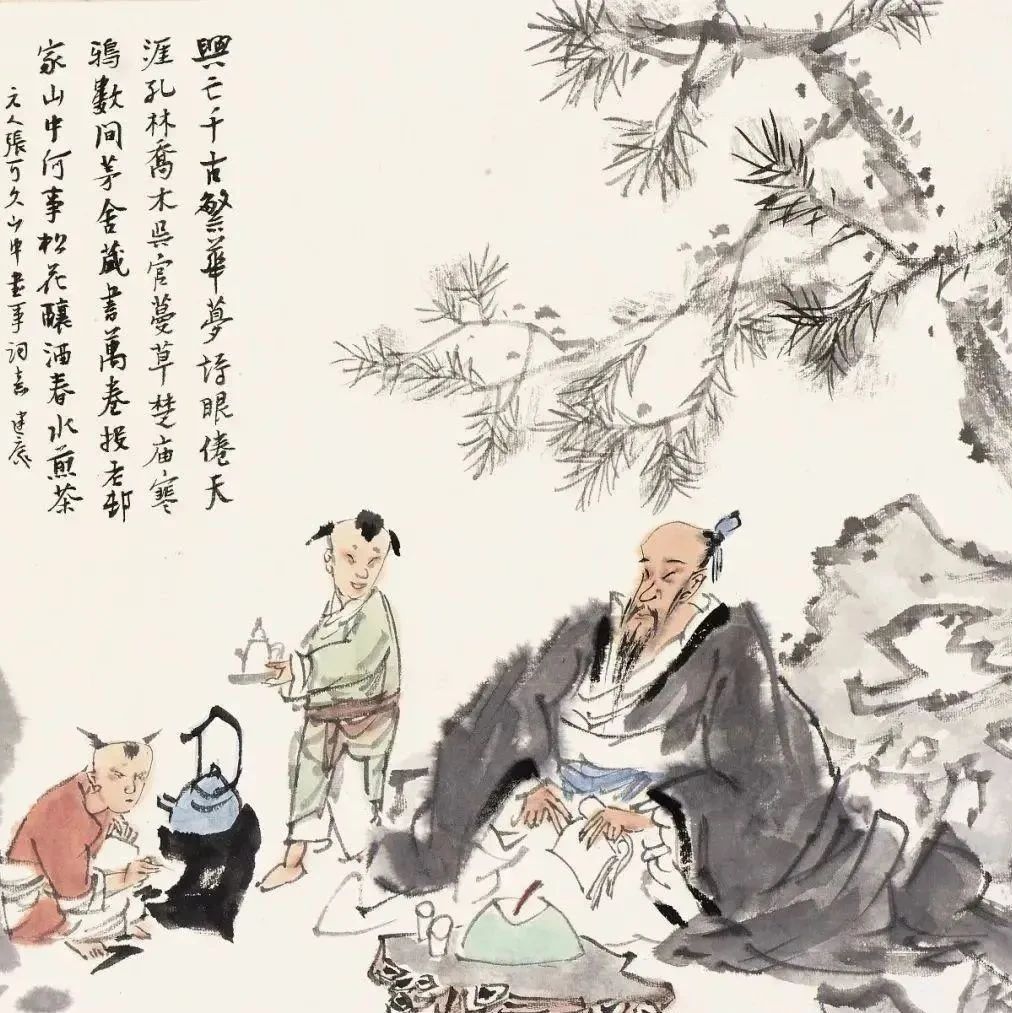 興亡千古繁華夢詩眼倦天
涯孔林喬木吳宮蔓草楚庙寒
鴉數间茅舍藏書萬卷投老邨
家山中何事松花釀酒春水煎茶
元人張可久山中書事詞意 建